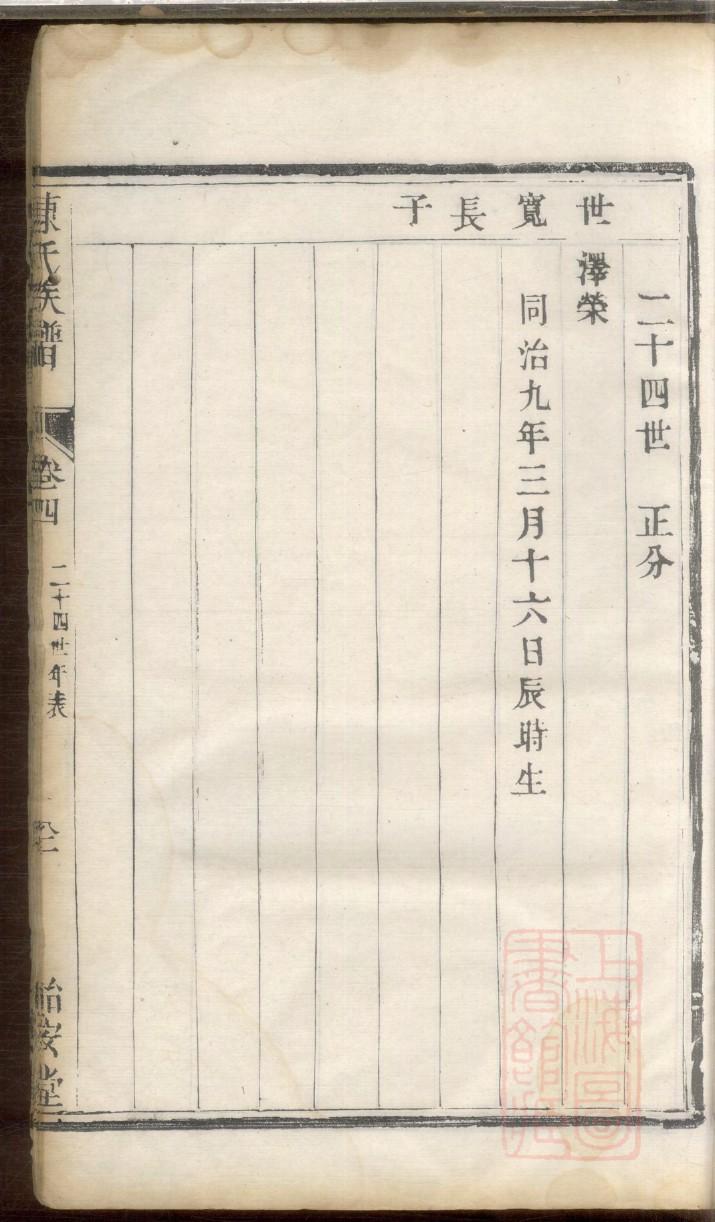 二十四世　正分
世寬長子
澤榮
同治九年三月十六日辰時生
陳氏族譜
卷四
二十四世年表
怡安堂
上海圖書館藏